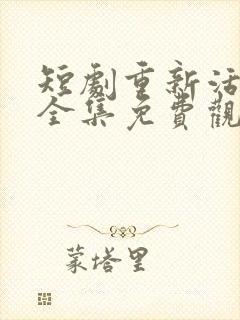 短劇重新活
全集免費觀
蒙塔里